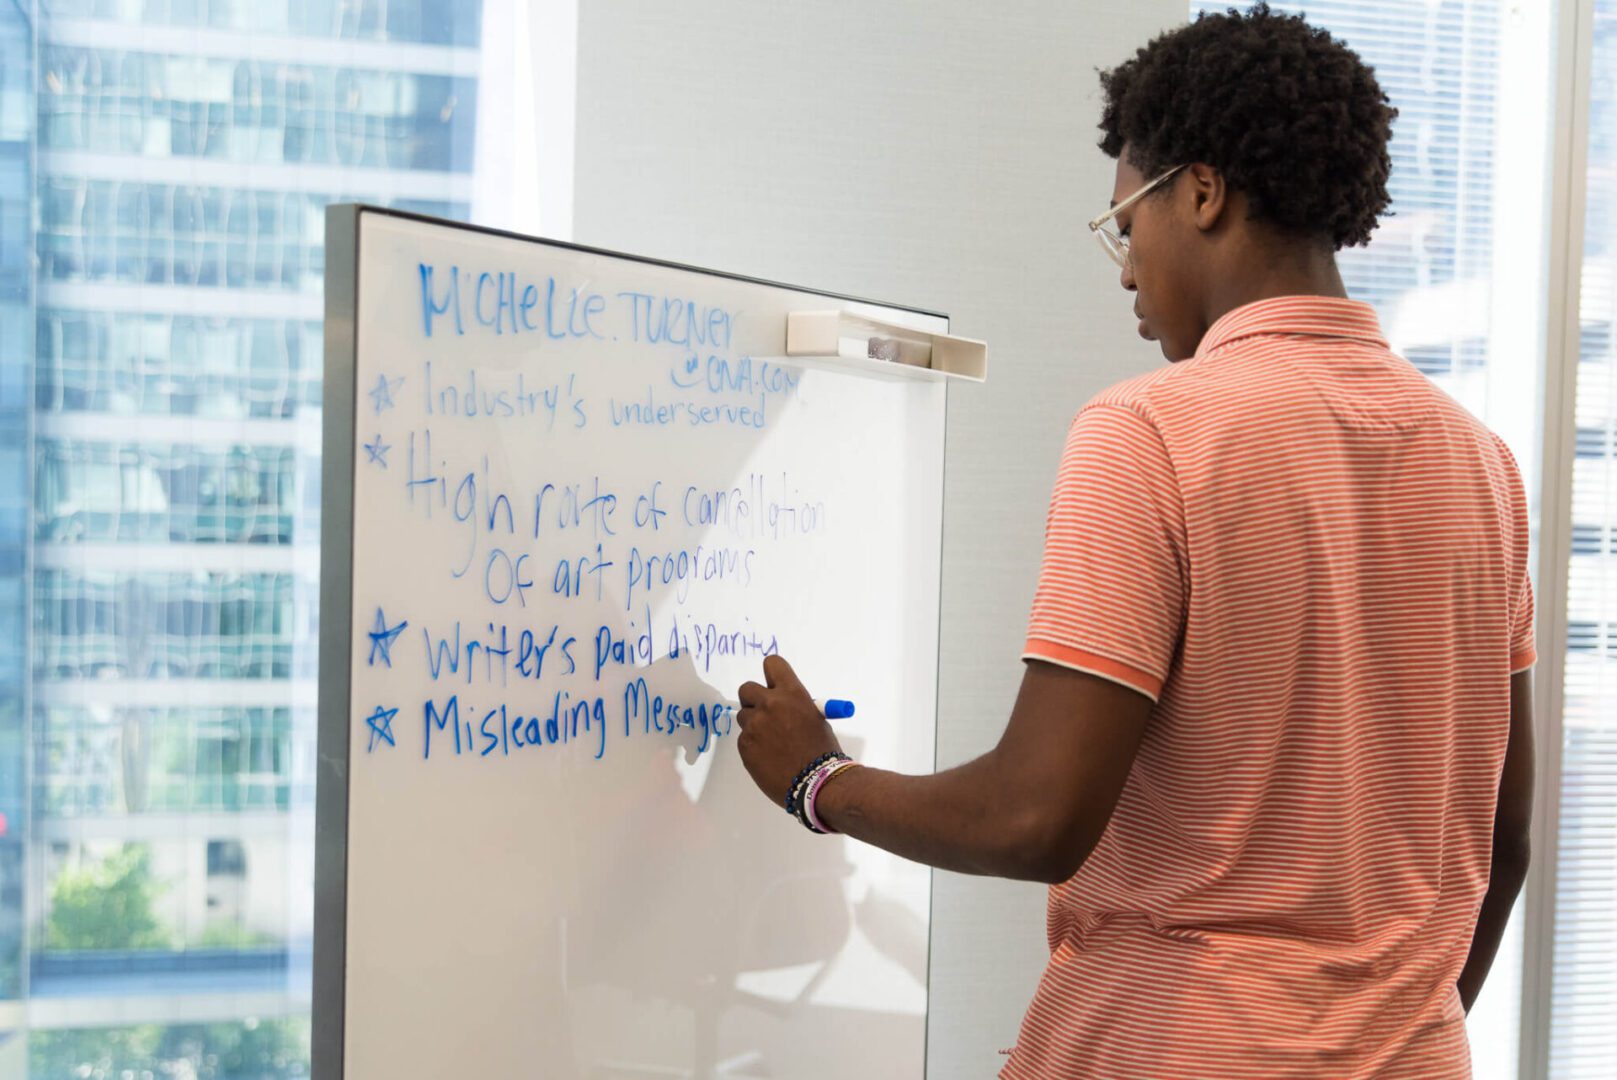 MiCHeLLe.TURNer
@CNA.COM
Industry's underserved
High rate of cancellation
Of art programs
Writer's paid disparity
Misleading Messages